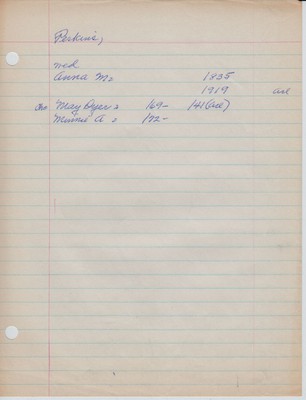 Perkins,
wed
Anna M. 1835
1919 Arl
ch May Dyer 2 169- 141 (Arl)
Minnie A 2 172-